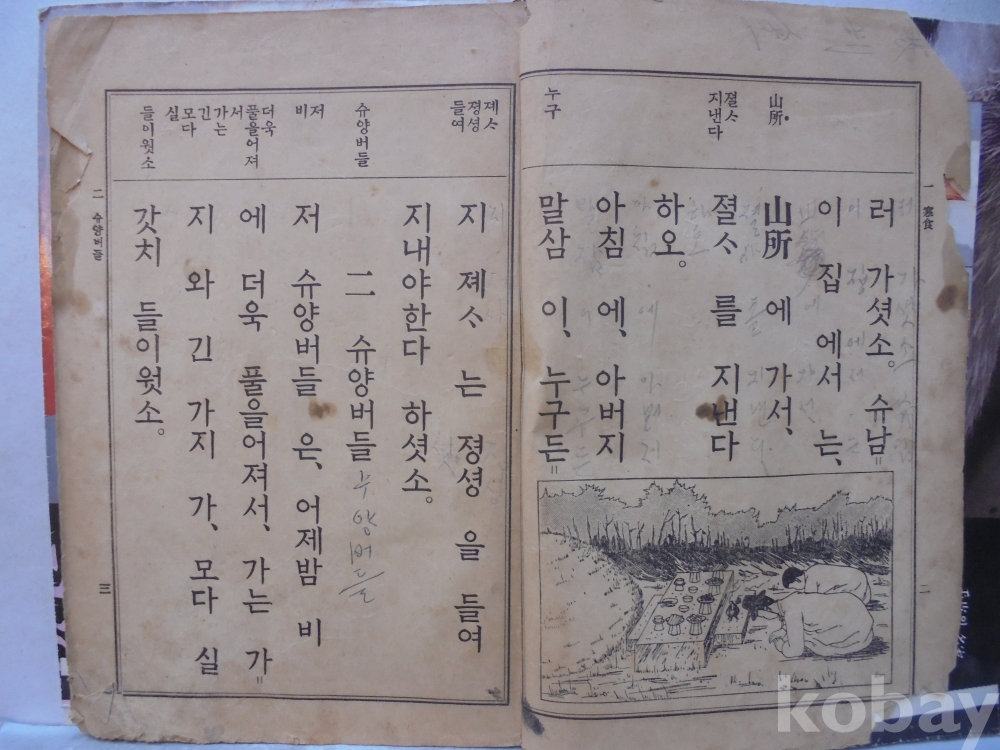 一 寒食
二
山所
졀ᄉᆞ
지낸다
누구
러 가셧소。 슈남＝
이 집 에서 는、
山所 에 가서、
졀ᄉᆞ 를 지낸다
하오。
아침 에、 아버지
말삼 이、 누구든＝
졔ᄉᆞ
졍셩
들여
슈양버들
저
비
더욱
풀을어져
서
가는
긴
모다
실
들이웟소
지 졔ᄉᆞ 는 졍셩 을 들여
지내야한다 하셧소。
二 슈양버들
수양버들
저 슈양버들 은、 어제밤 비
에 더욱 풀을어져서、 가는 가＝
지 와 긴 가지 가、 모다 실
갓치 들이웟소。
二 슈양버들
三
kobay